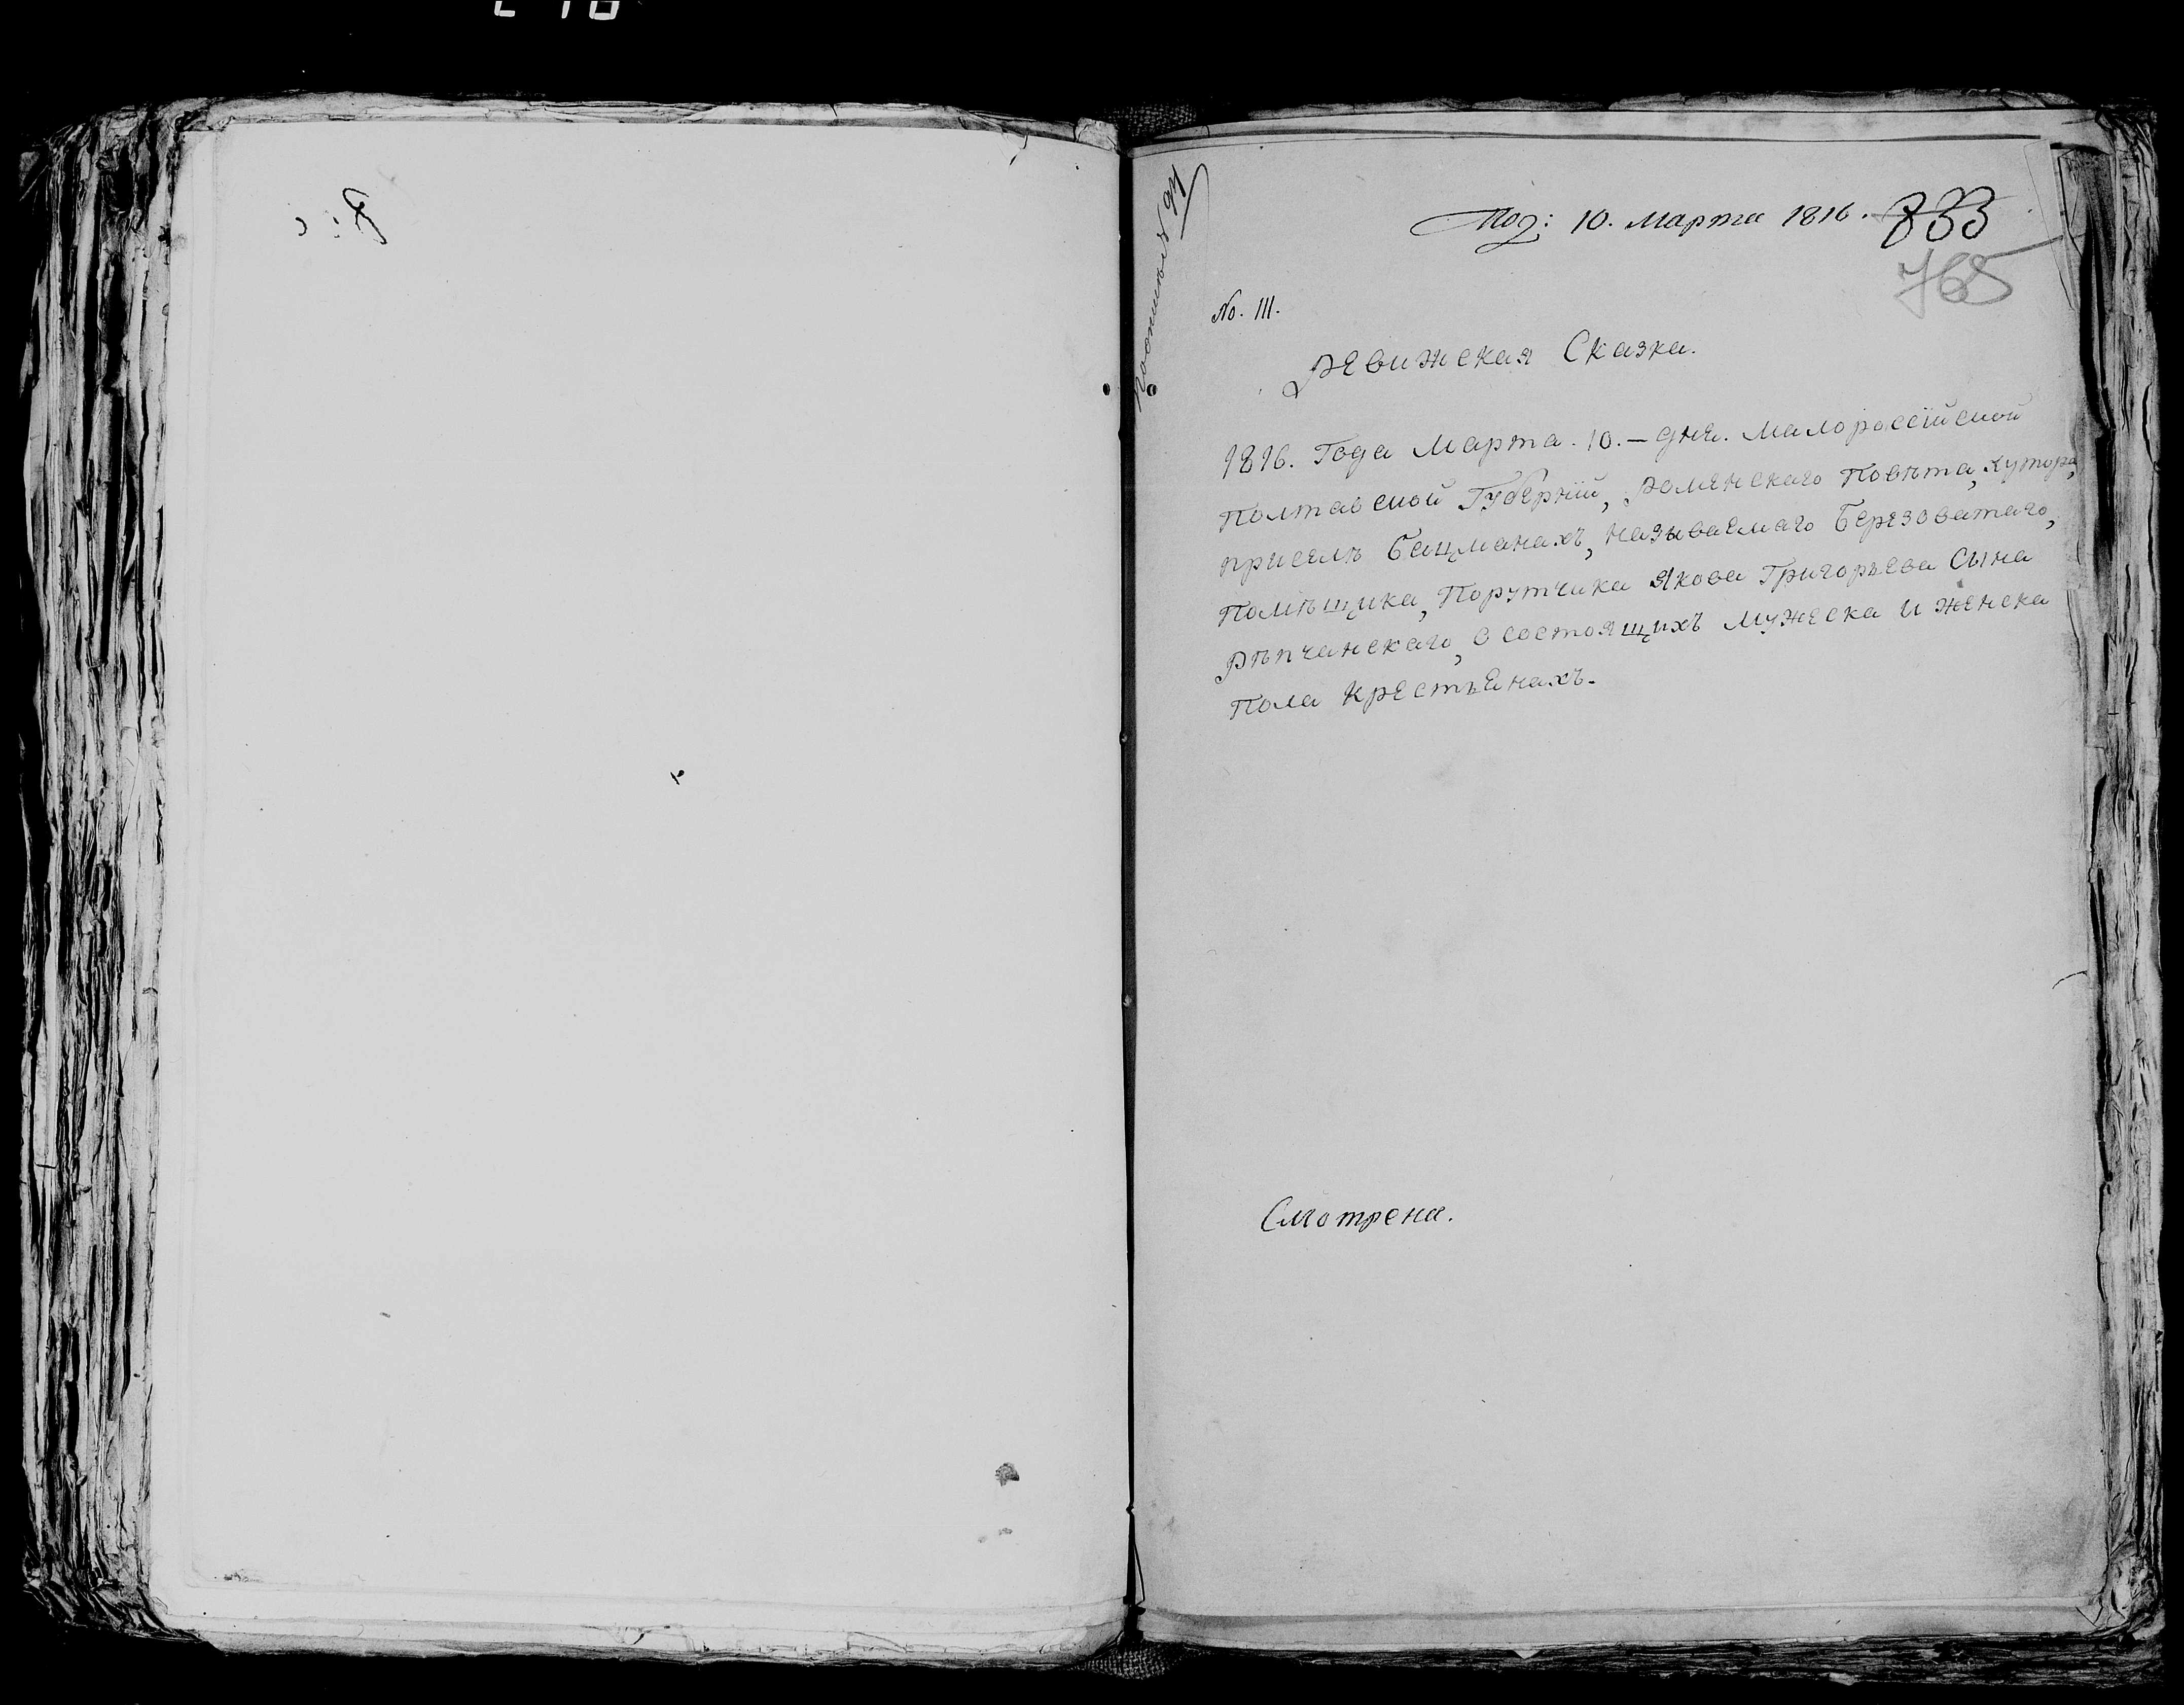 Под: 10. Марта 1816. 833
765
No. III.
Ревижская Сказка.
1816. Года Марта. 10. – дня. Малороссійской
Полтавской Губерніи, Роменскаго Повѣта, Хутора,
присѣлѣ Бацманахъ, называемаго Березоватаго,
Помѣщика, Порутчика Якова Григорьева Сына
Рѣпчанскаго, о состоящихъ мужеска и женска
Пола Крестьянахъ.
Смотрена.